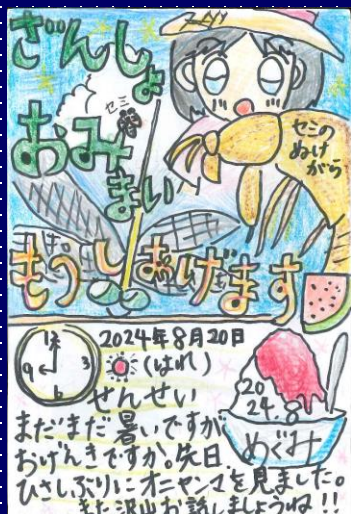 ざんしょ
おみまい
セミ
セミの
ぬけ
がら
もうしあげます
2024年8月20日
12
9
3
6
(はれ)
せんせい
まだまだ暑いですが
おげんきですか。先日
ひさしぶりにオニヤンマを見ました。
また沢山お話しましょうね!!
20
24.8
めぐみ